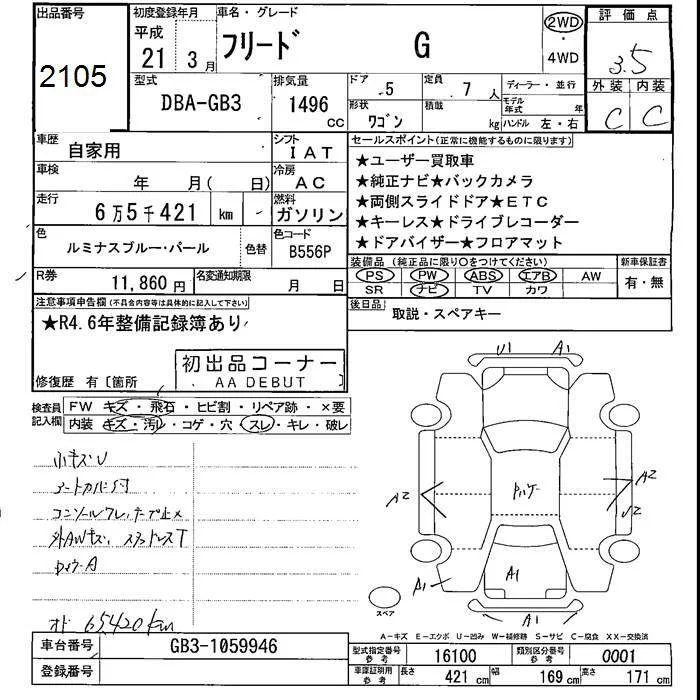 出品番号
2105
初度登録年月
平成
21年 3月
車名・グレード
フリード G
2WD
・
4WD
評価点
3.5
外装 内装
C C
型式
DBA-GB3
排気量
1496 cc
ドア
5
定員
7人
ディーラー・並行
形状
ワゴン
積載
kg
モデル年式 年
ハンドル 左・右
車歴
自家用
シフト
IAT
車検
年 月( 日)
冷房
AC
走行
6万5千421 km
燃料
ガソリン
色
ルミナスブルー・パール
色替
色コード
B556P
R券
11,860円
名変通知期限
月 日
セールスポイント(正常に機能するものに限ります)
★ユーザー買取車
★純正ナビ★バックカメラ
★両側スライドドア★ETC
★キーレス★ドライブレコーダー
★ドアバイザー★フロアマット
装備品 (純正品に限り○をつけてください)
PS PW ABS エアB AW
SR ナビ TV カワ
新車保証書
有・無
後日品
取説・スペアキー
注意事項申告欄(不具合内容等は具体的に記入して下さい)
★R4.6年整備記録簿あり
初出品コーナー
AA DEBUT
修復歴 有〔箇所 〕
検査員
記入欄
FW キズ・飛石・ヒビ割・リペア跡・×要
内装 キズ・汚レ・コゲ・穴・スレ・キレ・破レ
小キズU
オド 65420km
U1 A1
A2 A2
U2
A1 A1
A1
スペア
A−キズ E−エクボ U−凹み W−補修跡 S−サビ C−腐食 XX−交換済
車台番号
GB3-1059946
登録番号
型式指定番号
参考
16100
類別区分番号
参考
0001
車庫証明用
参考
長さ 421 cm 幅 169 cm 高さ 171 cm